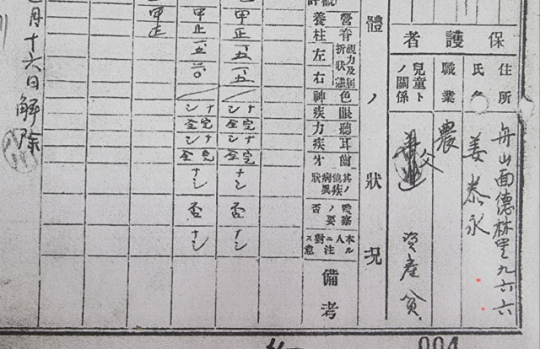 保護者
住所
舟山面德林里九六六
氏
姜泰永
職業
農
兒童トノ關係
父
資産貧
體ノ狀況
營養
脊柱
左
右
色神
眼疾
聽力
耳疾
齒牙
其ノ他疾病異狀
監察ノ要否
本人ニ對スル注意
備考
甲正
ナシ
完全
完全
ナシ
否
ナシ
甲正
ナシ
完全
完全
ナシ
否
ナシ
甲正
月十六日解除